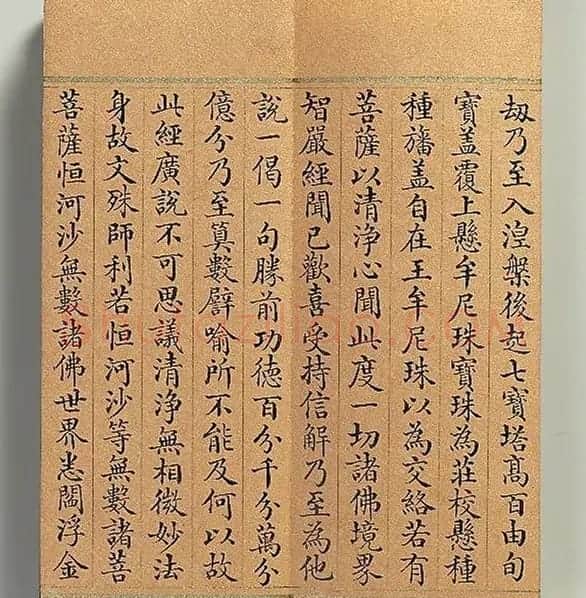 劫乃至入涅槃後起七寶塔髙百由旬
寶盖覆上懸牟尼珠寶珠為莊校懸種
種旛盖自在王牟尼珠以為交絡若有
菩薩以清浄心聞此度一切諸佛境界
智嚴經聞已歡喜受持信解乃至為他
說一偈一句勝前功徳百分千分萬分
億分乃至筭數譬喻所不能及何以故
此經廣說不可思議清浄無相微妙法
身故文殊師利若恒河沙等無數諸菩
菩薩恒河沙無數諸佛世界悉閻浮金